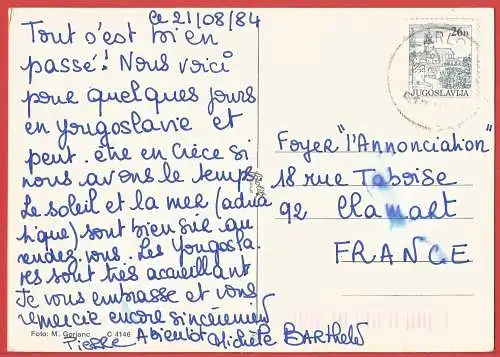 le 21/08/84
Tout s'est bien
passé! Nous voici
pour quelques jours
en Yougoslavie et
peut-être en Grèce si
nous avons le temps
Le soleil et la mer (adria
tique) sont bien sûr au
rendez-vous. Les Yougosla
ves sont très accueillant
Je vous embrasse et vous
remercie encore sincèrement
A bientôt
Pierre Michèle
Foto: M. Gerjanc C 4146
26D
JUGOSLAVIJA
Foyer "l'Annonciation"
18 rue Taboise
92 Clamart
FRANCE